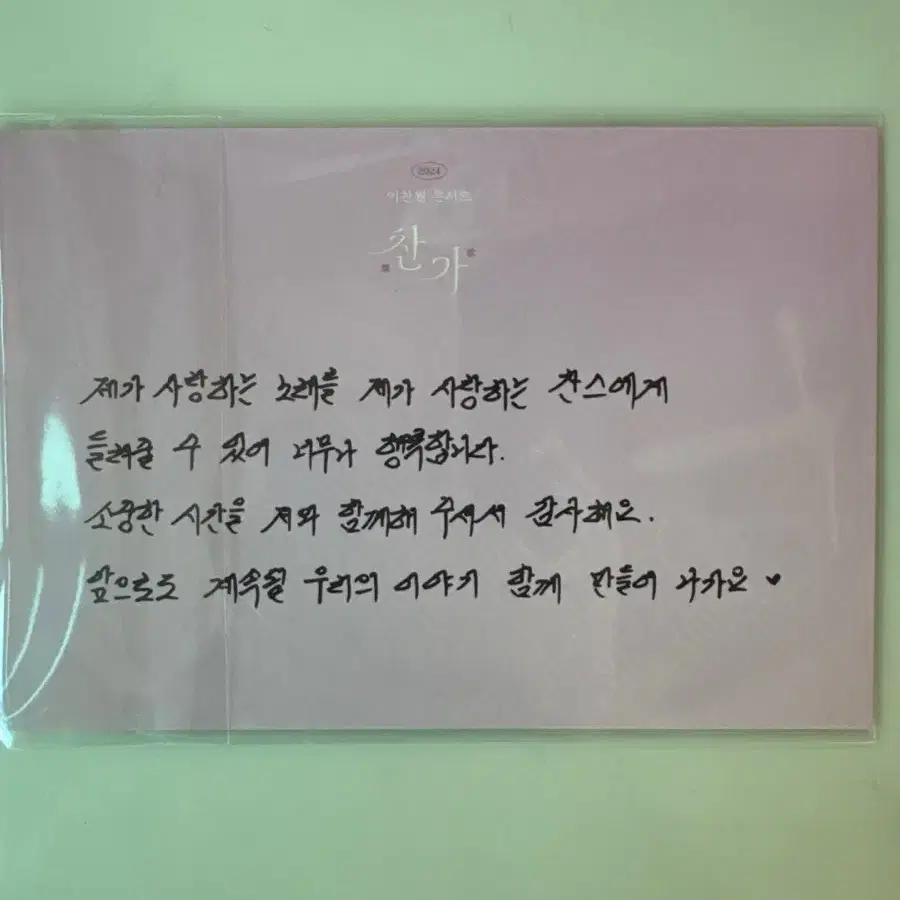 2024
이찬원 콘서트
찬가
제가 사랑하는 노래를 제가 사랑하는 찬스에게
들려줄 수 있어 너무나 행복합니다.
소중한 시간을 저와 함께해 주셔서 감사해요.
앞으로도 계속될 우리의 이야기 함께 만들어 나가요 ♥